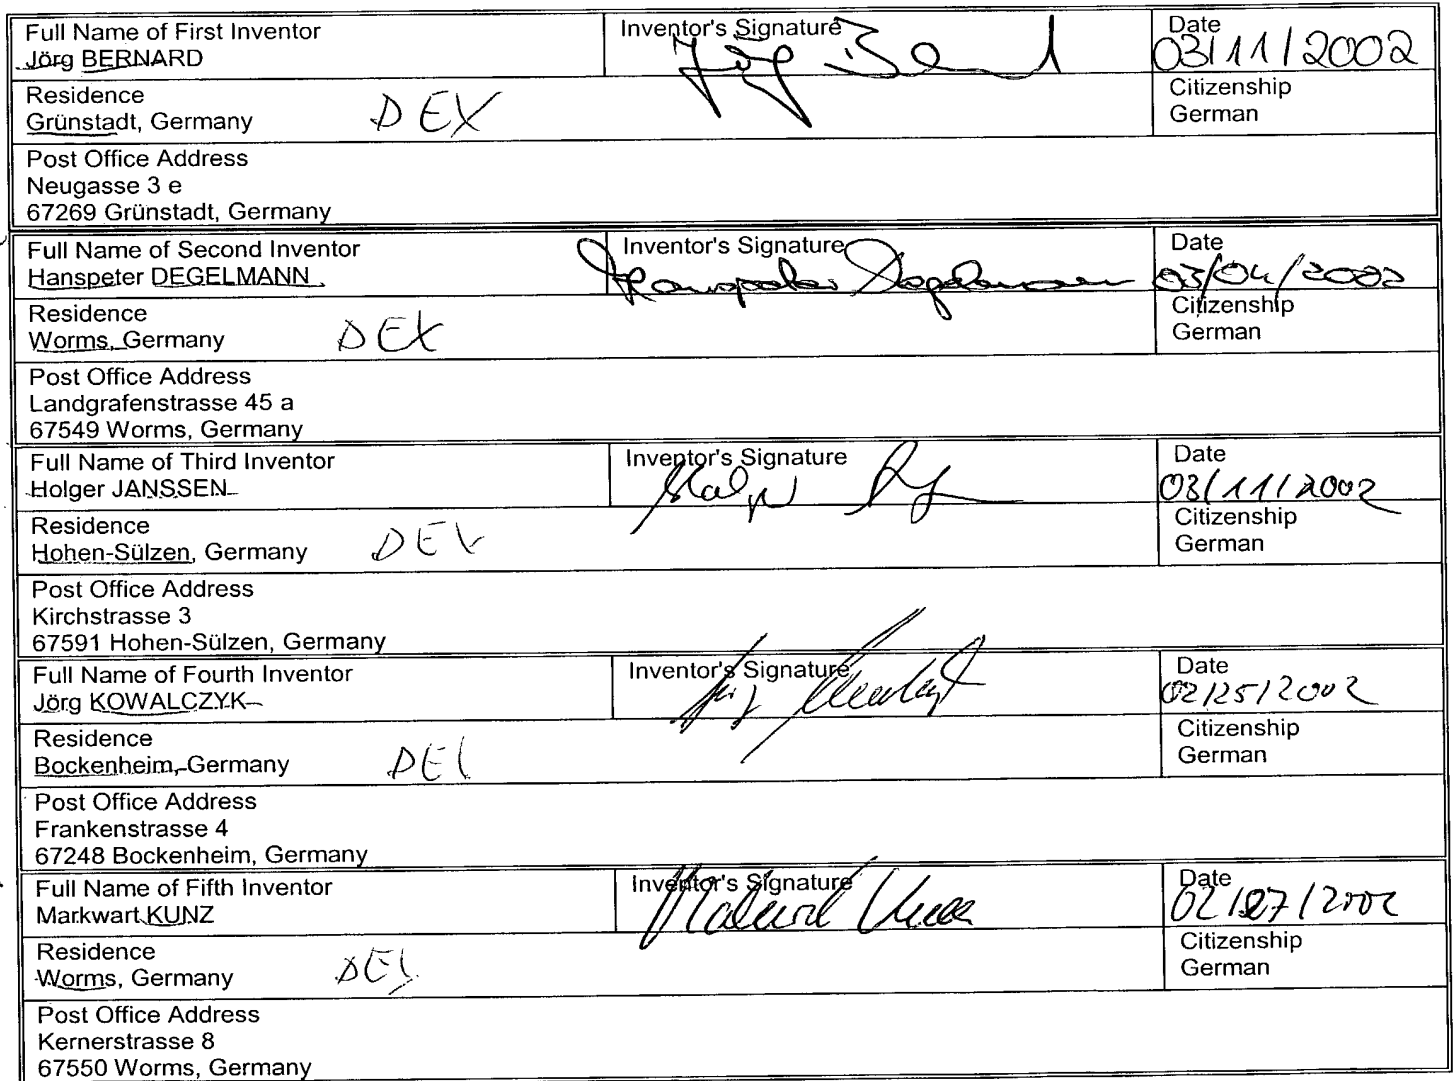 Full Name of First Inventor
Jörg BERNARD
Inventor's Signature
Jörg Bernard
Date
03/11/2002
Residence
Grünstadt, Germany
DEX
Citizenship
German
Post Office Address
Neugasse 3 e
67269 Grünstadt, Germany
Full Name of Second Inventor
Hanspeter DEGELMANN
Inventor's Signature
Hanspeter Degelmann
Date
03/04/2002
Residence
Worms, Germany
DEX
Citizenship
German
Post Office Address
Landgrafenstrasse 45 a
67549 Worms, Germany
Full Name of Third Inventor
Holger JANSSEN
Inventor's Signature
Date
03/11/2002
Residence
Hohen-Sülzen, Germany
DEX
Citizenship
German
Post Office Address
Kirchstrasse 3
67591 Hohen-Sülzen, Germany
Full Name of Fourth Inventor
Jörg KOWALCZYK
Inventor's Signature
Date
02/25/2002
Residence
Bockenheim, Germany
DEX
Citizenship
German
Post Office Address
Frankenstrasse 4
67248 Bockenheim, Germany
Full Name of Fifth Inventor
Markwart KUNZ
Inventor's Signature
Markwart Kunz
Date
02/27/2002
Residence
Worms, Germany
DEX
Citizenship
German
Post Office Address
Kernerstrasse 8
67550 Worms, Germany